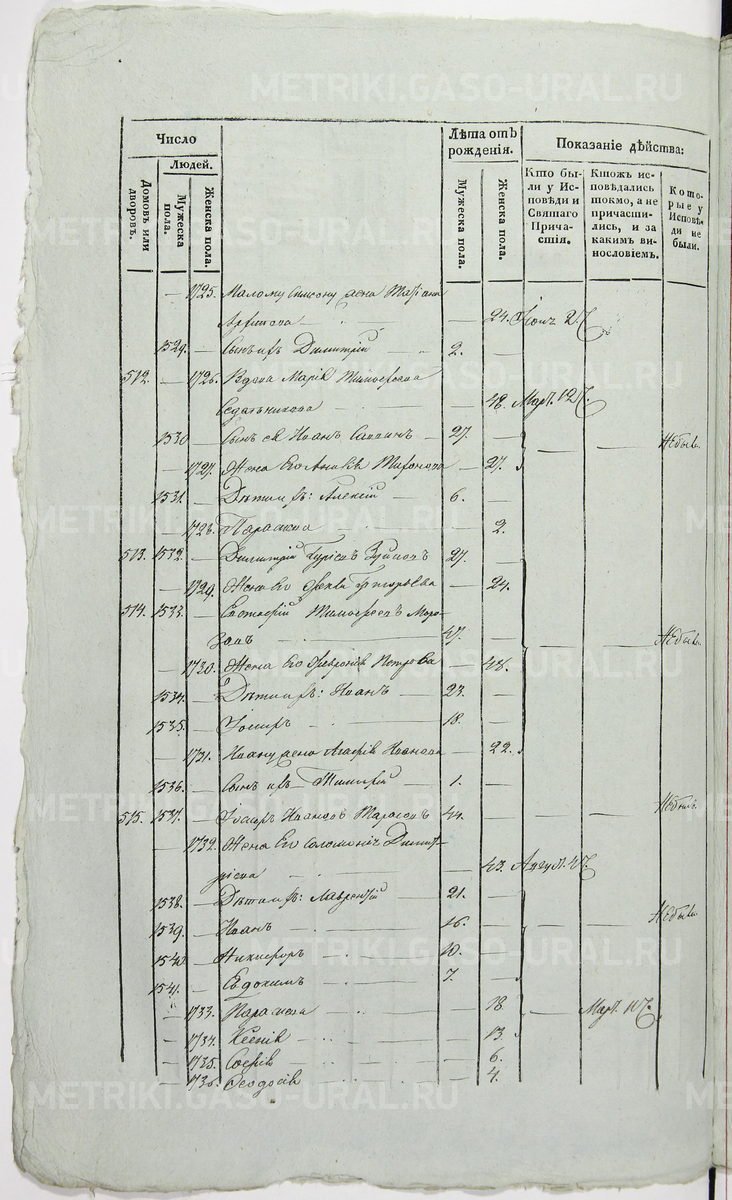 METRIKI.GASO-URAL.RU
Число
Людей.
Домовъ или дворовъ.
Мужеска пола.
Женска пола.
Лѣта отъ рожденія.
Мужеска пола.
Женска пола.
Показаніе дѣйства:
Кто были у Исповѣди и Святаго Причастія.
Ктожъ исповѣдались токмо, а не причастились, и за какимъ винословіемъ.
Которые у Исповѣди не были.
— 1725. жена Татіана
— 24. 27.
1529. — Сынъ ихъ Димитрій — 2. —
512. — 1726. Вдова Марія Тимофеева
— 48. Март. 12.
1530 — Сынъ ея Иванъ — 27. — Небылъ.
— 1727. Жена Его — 27.
1531. — Дѣти ихъ: Алексій — 6. —
— 1728. Параскева — 2.
513. 1532. — Димитрій 27. —
— 1729. Жена Его Григорьева — 24.
514. 1533. — Тимофеевъ Моро-
зовъ — 47. — Небыли
— 1730. Жена Его Февронія Петрова — 48.
1534. — Дѣти ихъ: Иванъ — 23. —
1535. — Іосифъ — 18. —
— 1731. Ивану жена Агафія Иванова — 22.
1536. — Сынъ ихъ — 1. —
515. 1537. — Ивановъ 44. — Небылъ.
— 1732. Жена Его Соломонія Димит-
ріева — 43. Август. 4.
1538. — Дѣти ихъ: Лаврентій — 21. — Небыли
1539. — Иванъ — 16. —
1540 — Никифоръ — 10. —
1541. — Евдокимъ — 7. —
— 1733. Параскева — 18. Март. 10.
— 1734. Ксенія — 13.
— 1735. Софія — 6.
— 1736. Феодосія — 4.